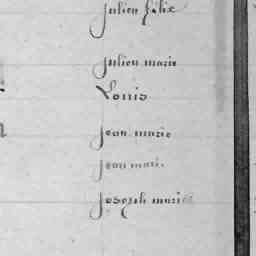 julien félix
julien marie
Louis
jean marie
jean marie
joseph marie